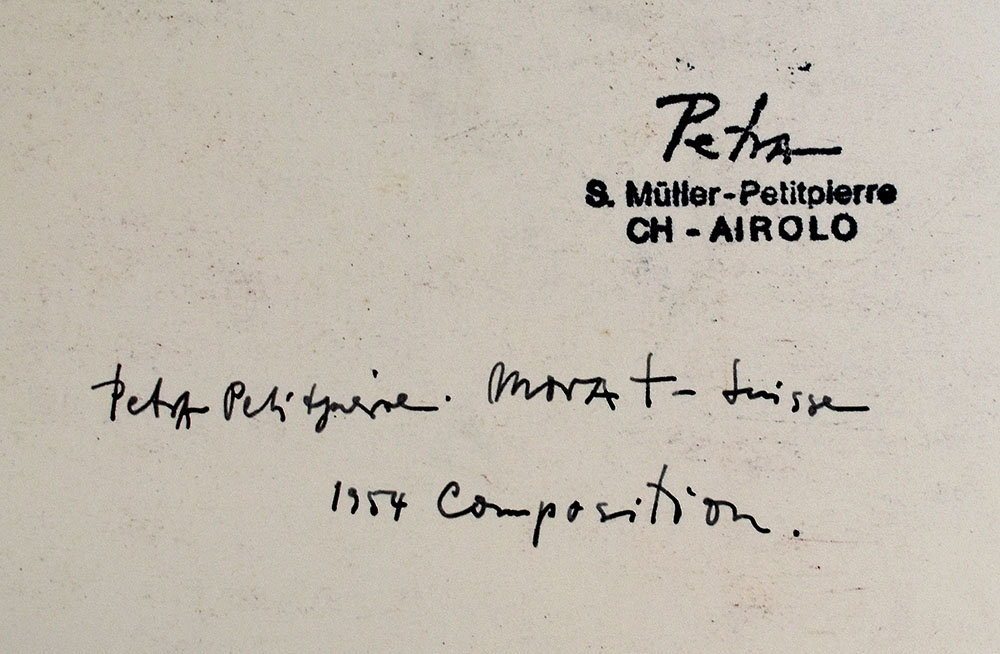 Petra
S. Müller-Petitpierre
CH - AIROLO
Petra Petitpierre. Morat - Suisse
1954 Composition.